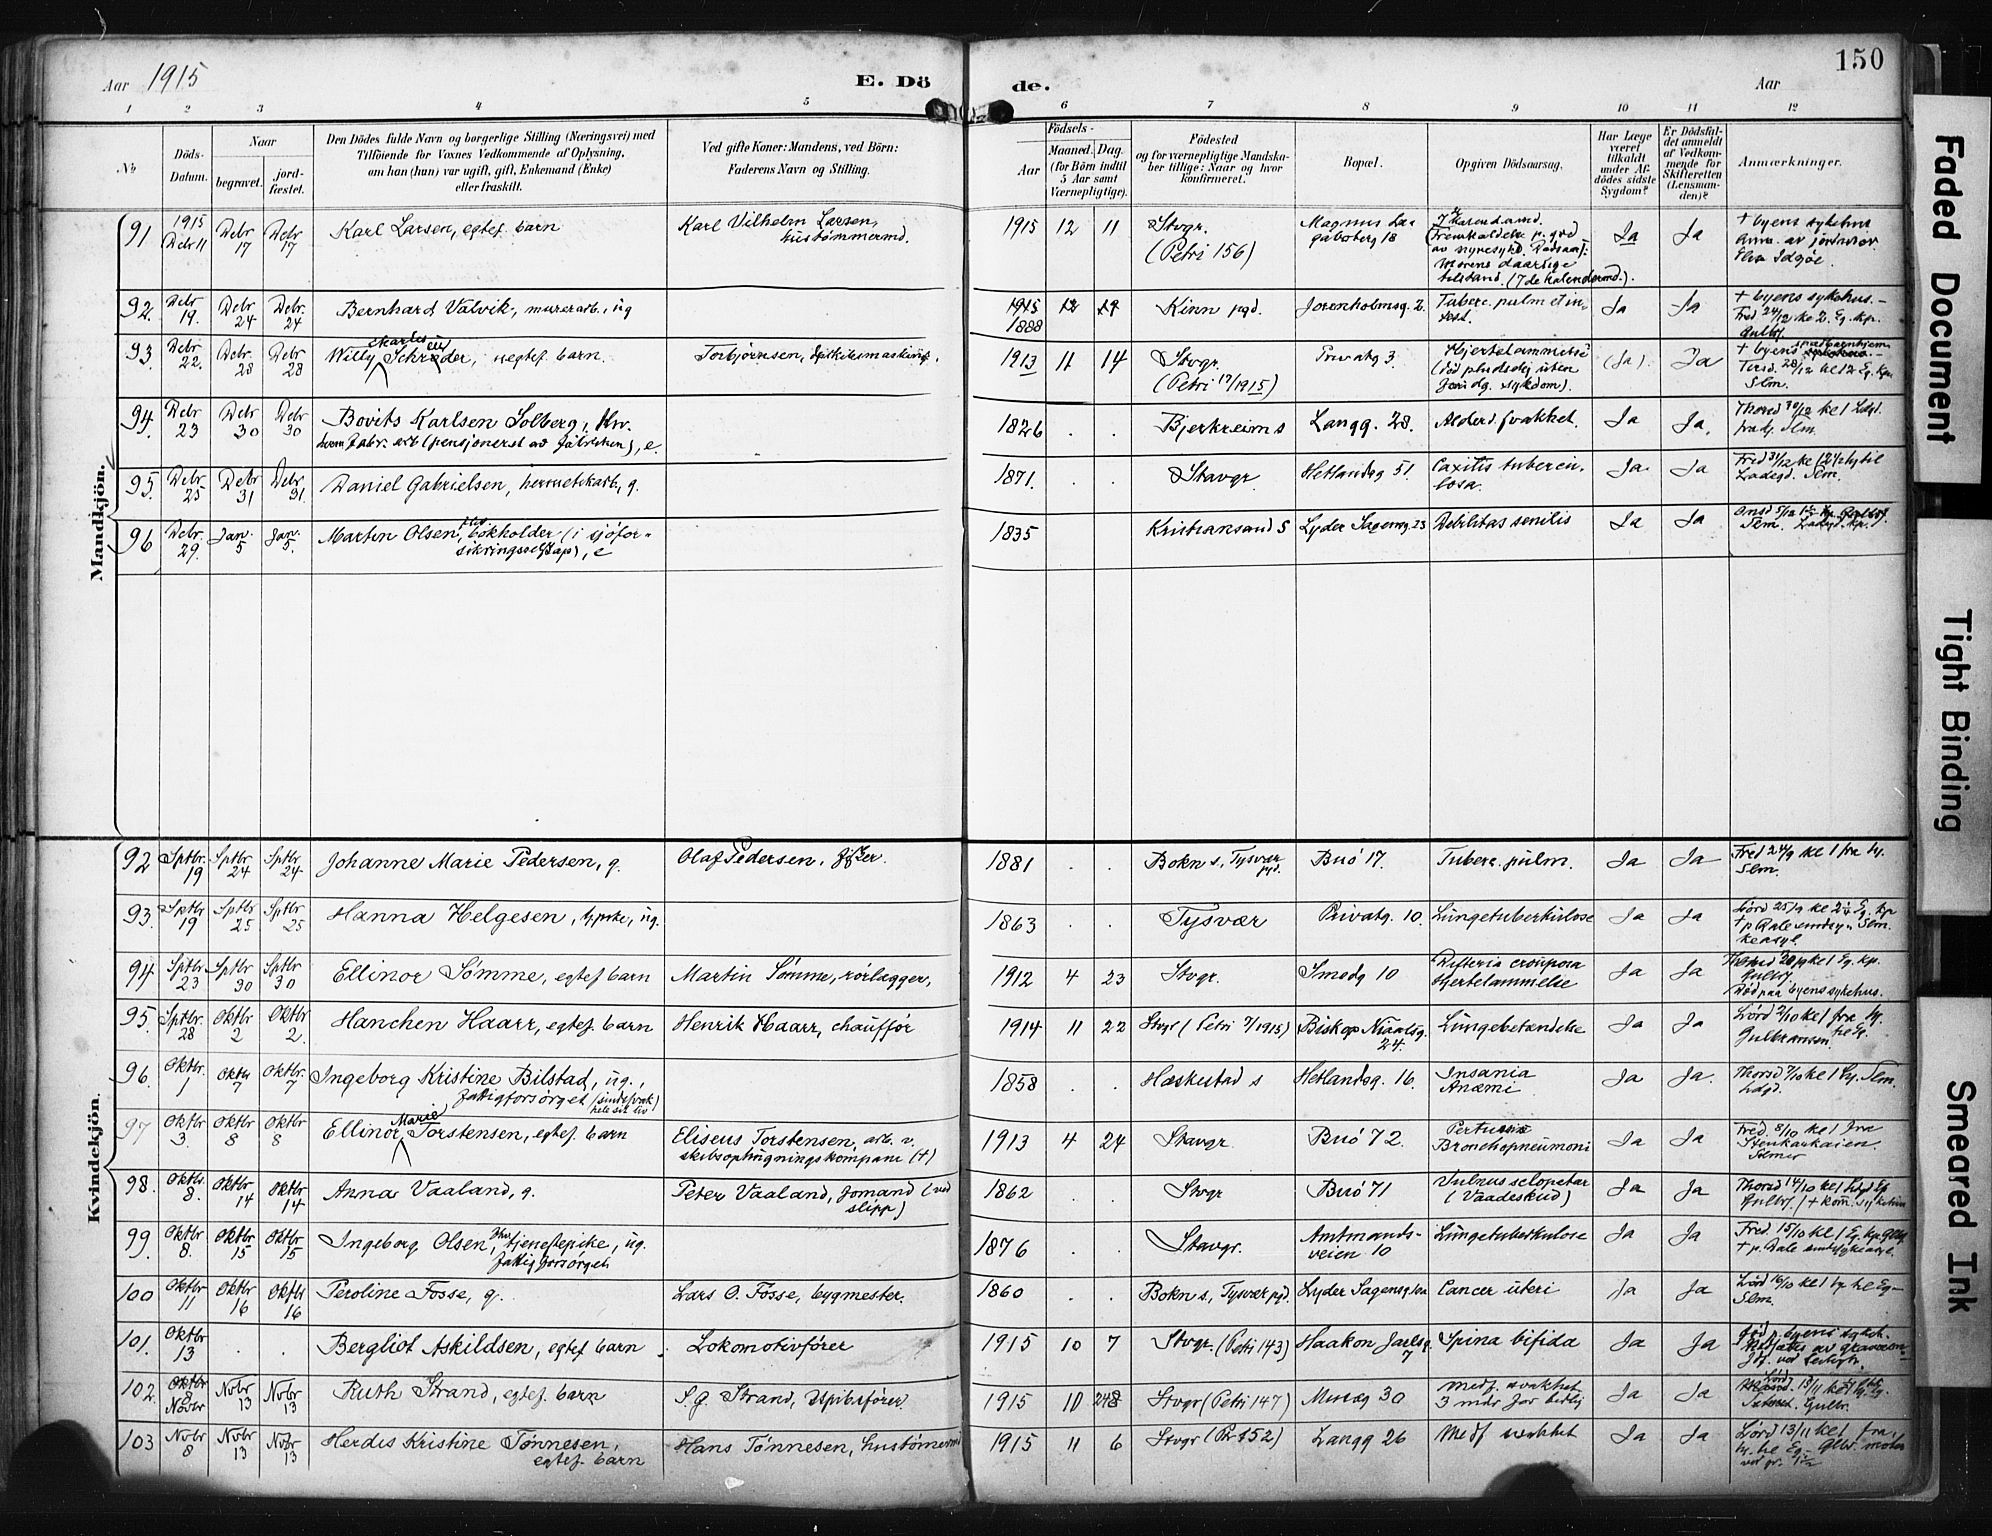 Aar 1915
E. Dö
de.
Aar
150
1 2 3 4 5 6 7 8 9 10 11 12
No
Döds-Datum.
Naar
begravet.
jord-fæstet.
Den Dödes fulde Navn og borgerlige Stilling (Næringsvei) med
Tilföiende for Voxnes Vedkommende af Oplysning,
om han (hun) var ugift, gift, Enkemand (Enke)
eller fraskilt.
Ved gifte Koner: Mandens, ved Börn:
Faderens Navn og Stilling.
Födsels-
Aar
Maaned. Dag.
(for Börn indtil
5 Aar samt
Værnepligtige).
Födested
og for værnepligtige Mandska-
ber tillige: Naar og hvor
konfirmeret.
Bopæl.
Opgiven Dödsaarsag.
Har Læge
været
tilkaldt
under Af-
dödes sidste
Sygdom?
Er Dödsfal-
det anmeldt
af Vedkom-
mende for
Skifteretten
(Lensman-
den)?
Anmærkninger.
Mandkjön.
91 1915 Debr 11 Debr 17 Debr 17 Karl Larsen, egtef. barn Karl Vilhelm Larsen, hustømmermd. 1915 12 11 Stvgr. (Petri 156) Magnus Laagabøterg 18 Ja Ja + byens sykehus
92. Debr 19. Debr 24 Debr. 24 Bernhard Valvik, murerarb., ug 1915 1888 12 19 Kinn pgd. Jorenholmsg. 2. Tuberc. pulm et intest. Ja Ja + byens sykehus.- Fred 24/12 kl 2. Eg. kp. Gulbr.
93. Debr 22. Debr. 28 Debr 28 Willy Charles Schrøder, uegtef. barn Torbjørnsen, 1913 11 14 Stvgr. (Petri 17/1915) Privatg 3. Hjertelammelse (død pludselig uten foru dg. sykdom). (Ja) Ja + byens
94. Debr 23 Debr 30 Debr 30 Bovits Karlsen Solberg, Kv. (pensjonerst av fabrikken), e. 1826 . . Bjerkreim s Langg. 28. Alderd. svakhet. Ja Ja. Thorsd 30/12 kl 1 Ldgd. Slm.
95. Debr 25 Debr 31 Debr 31. Daniel Gabrielsen, hermetikarb., g. 1871. . . Stavgr. Hetlandsg 51. Coxitis tubercu-losa. Ja Ja Fred 31/12 kl Ladegd. Slm.
96 Debr. 29. Jan. 5 Jan. 5. Martin Olsen, fhv. bokholder (i sjøfor-sikringsselskap), e 1835 Kristiansand S Lyder Sagensg. 23 Debilitas senilis Ja Ja
Kvindekjön.
92 Sptbr. 19 Sptbr. 24 Sptbr. 24 Johanne Marie Pedersen, g. Olaf Pedersen, fisker. 1881 . . Bokn s, Tysvær pgd. Buø 17. Tuberc. pulm. Ja Ja Fred 24/9 kl 1 fra hj. Slm.
93. Sptbr 19 Sptbr 25 Sptbr 25 Hanna Helgesen, tj.pike, ug. 1863 . . Tysvær Privatg. 10. Lungetuberkulose Ja Ja Lørd 25/9 kl 2¼ Eg. kp + p. Dale sindsyk Slm.
94 Sptbr 23 Sptbr 30 Sptbr 30 Ellinor Sømme, egtef barn Martin Sømme, rørlægger, 1912 4 23 Stvgr. Smedg 10 Difteria crouposa Hjertelammelse Ja Ja Gulbr Død paa byens sykehus.
95. Sptbr. 28 Oktbr 2 Oktbr 2. Hanchen Haarr, egtef. barn Henrik Haarr, chauffør 1914 11 22 Stvgr (Petri 7/1915) Biskop Njaalsg. 24. Lungebetændelse Ja Ja Lørd 2/10 kl 1 fra hj. Gulbransen.
96. Oktbr. 1 Oktbr 7 Oktbr. 7 Ingeborg Kristine Bilstad, ug., fattigforsørget (sindssvak hele sit liv 1858 . . Heskestad s Hetlandsg. 16. Insania Anæmi Ja Ja. Thorsd 7/10 kl 1 hj. Slm. Ldgd.
97 Oktbr 3. Oktbr 8 Oktbr 8 Ellinor Marie Torstensen, egtef. barn Eliseus Torstensen, arb. v. skibsophugningskompani (+) 1913 4 24 Stavgr. Buø 72. Pertussis Bronchopneumoni Ja Ja Fred. 8/10 kl 1 fra Stenkarkaien Selmer
98. Oktbr. 8. Oktbr 14 Oktbr 14 Anna Vaaland, g. Peter Vaaland, formand (ved slipp) 1862 . . Stvgr Buø 71 Vulnus sclopetar (Vaadeskud) Ja Ja Thorsd 14/10 kl 1 Ldgd Eg Gulbr. (+ kom. sykehus
99. Oktbr 8. Oktbr 15 Oktbr 15 Ingeborg Olsen, fhv tjenestepike, ug. Fattigforsørget 1876 . . Stavgr. Amtmands-veien 10 Lungetuberkulose Ja Ja Fred. 15/10 kl 1 Eg. kp. Glbr + p. Dale sindssykeasyl.
100 Oktbr 11 Oktbr 16 Oktbr 16 Peroline Fosse, g. Lars O. Fosse, bygmester. 1860 . . Bokn s., Tysvær pgd. Lyder Sagensg. Cancer uteri Ja Ja Lørd 16/10 kl 1 hj. hl Eg- Slm.
101. Oktbr 13 . . Bergliot Askildsen, egtef barn Lokomotivfører 1915 10 7 Stvgr. (Petri 143) Haakon Jarlsg. 7 Spina bifida Ja Ja
102. Oktbr 8 Novbr Novbr 13 Novbr 13 Ruth Strand, egtef. barn S. G. Strand, 1915 10 Stvgr (Petri 147) Musæg 30 Medf. svakhet 3 mdr for tidlig Ja Ja
103 Novbr 8 Novbr 13 Novbr 13 Herdis Kristine Tønnesen, egtef. barn Hans Tønnesen, hustømrer 1915 11 6 Stvgr (Ptr 152) Langg 26 Medf svakhet Ja Ja Lørd 13/11 kl 1 fra
Faded Document
Tight Binding
Smeared Ink